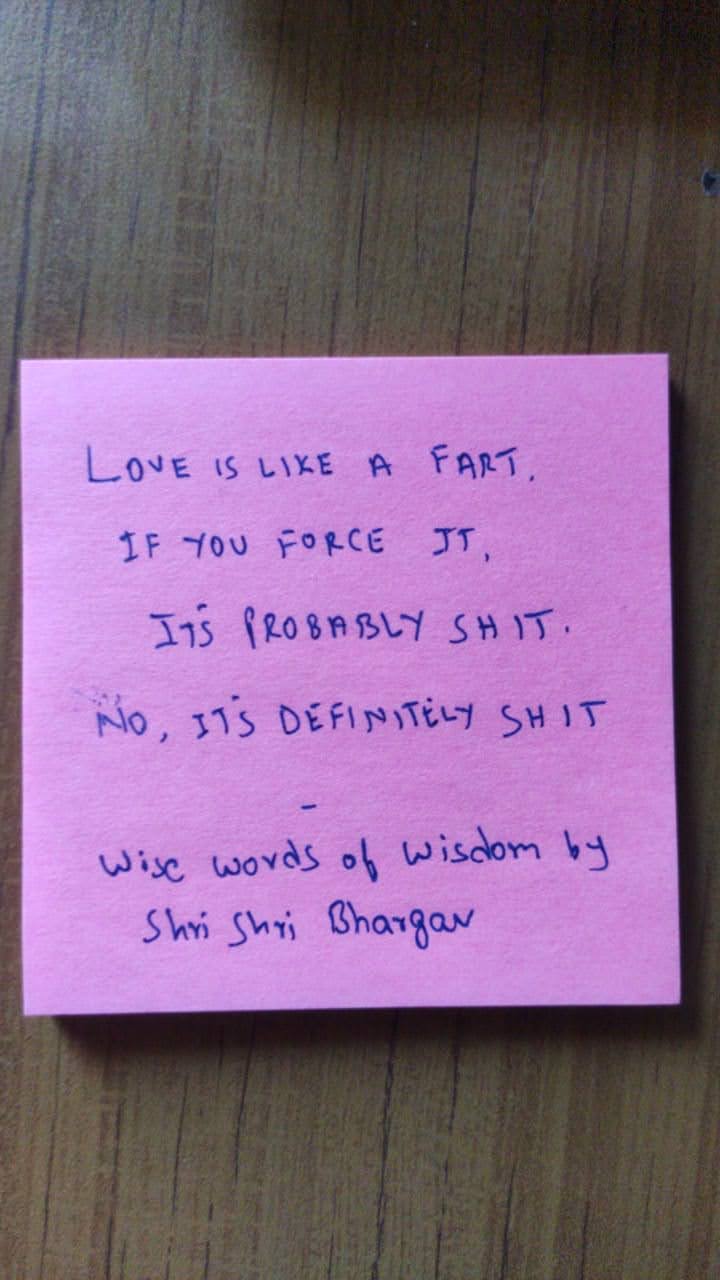 LOVE IS LIKE A FART.
IF YOU FORCE IT,
IT'S PROBABLY SHIT.
NO, IT'S DEFINITELY SHIT
-
Wise words of wisdom by
Shri Shri Bhargav